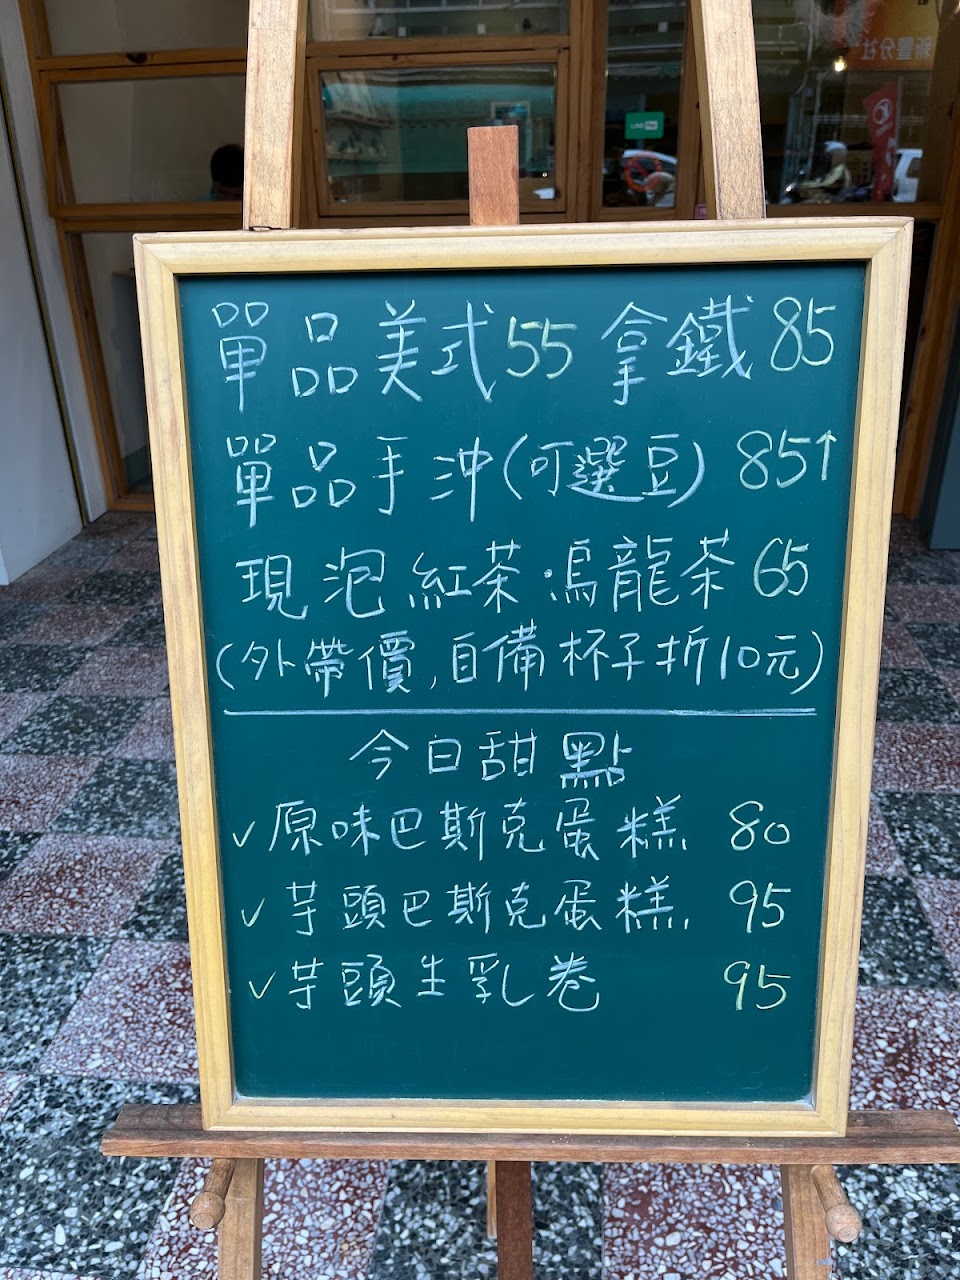 LINE Pay
單品美式55 拿鐵85
單品手沖(可選豆) 85↑
現泡紅茶·烏龍茶65
(外帶價,自備杯子折10元)
今日甜點
✓原味巴斯克蛋糕 80
✓芋頭巴斯克蛋糕 95
✓芋頭生乳卷 95